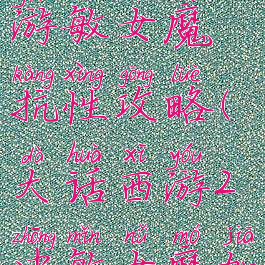 游敏女魔
kàng xìng gōng lüè
抗性攻略(
dà huà xī yóu
大话西游2
zhōng mǐn nǚ mó jiā